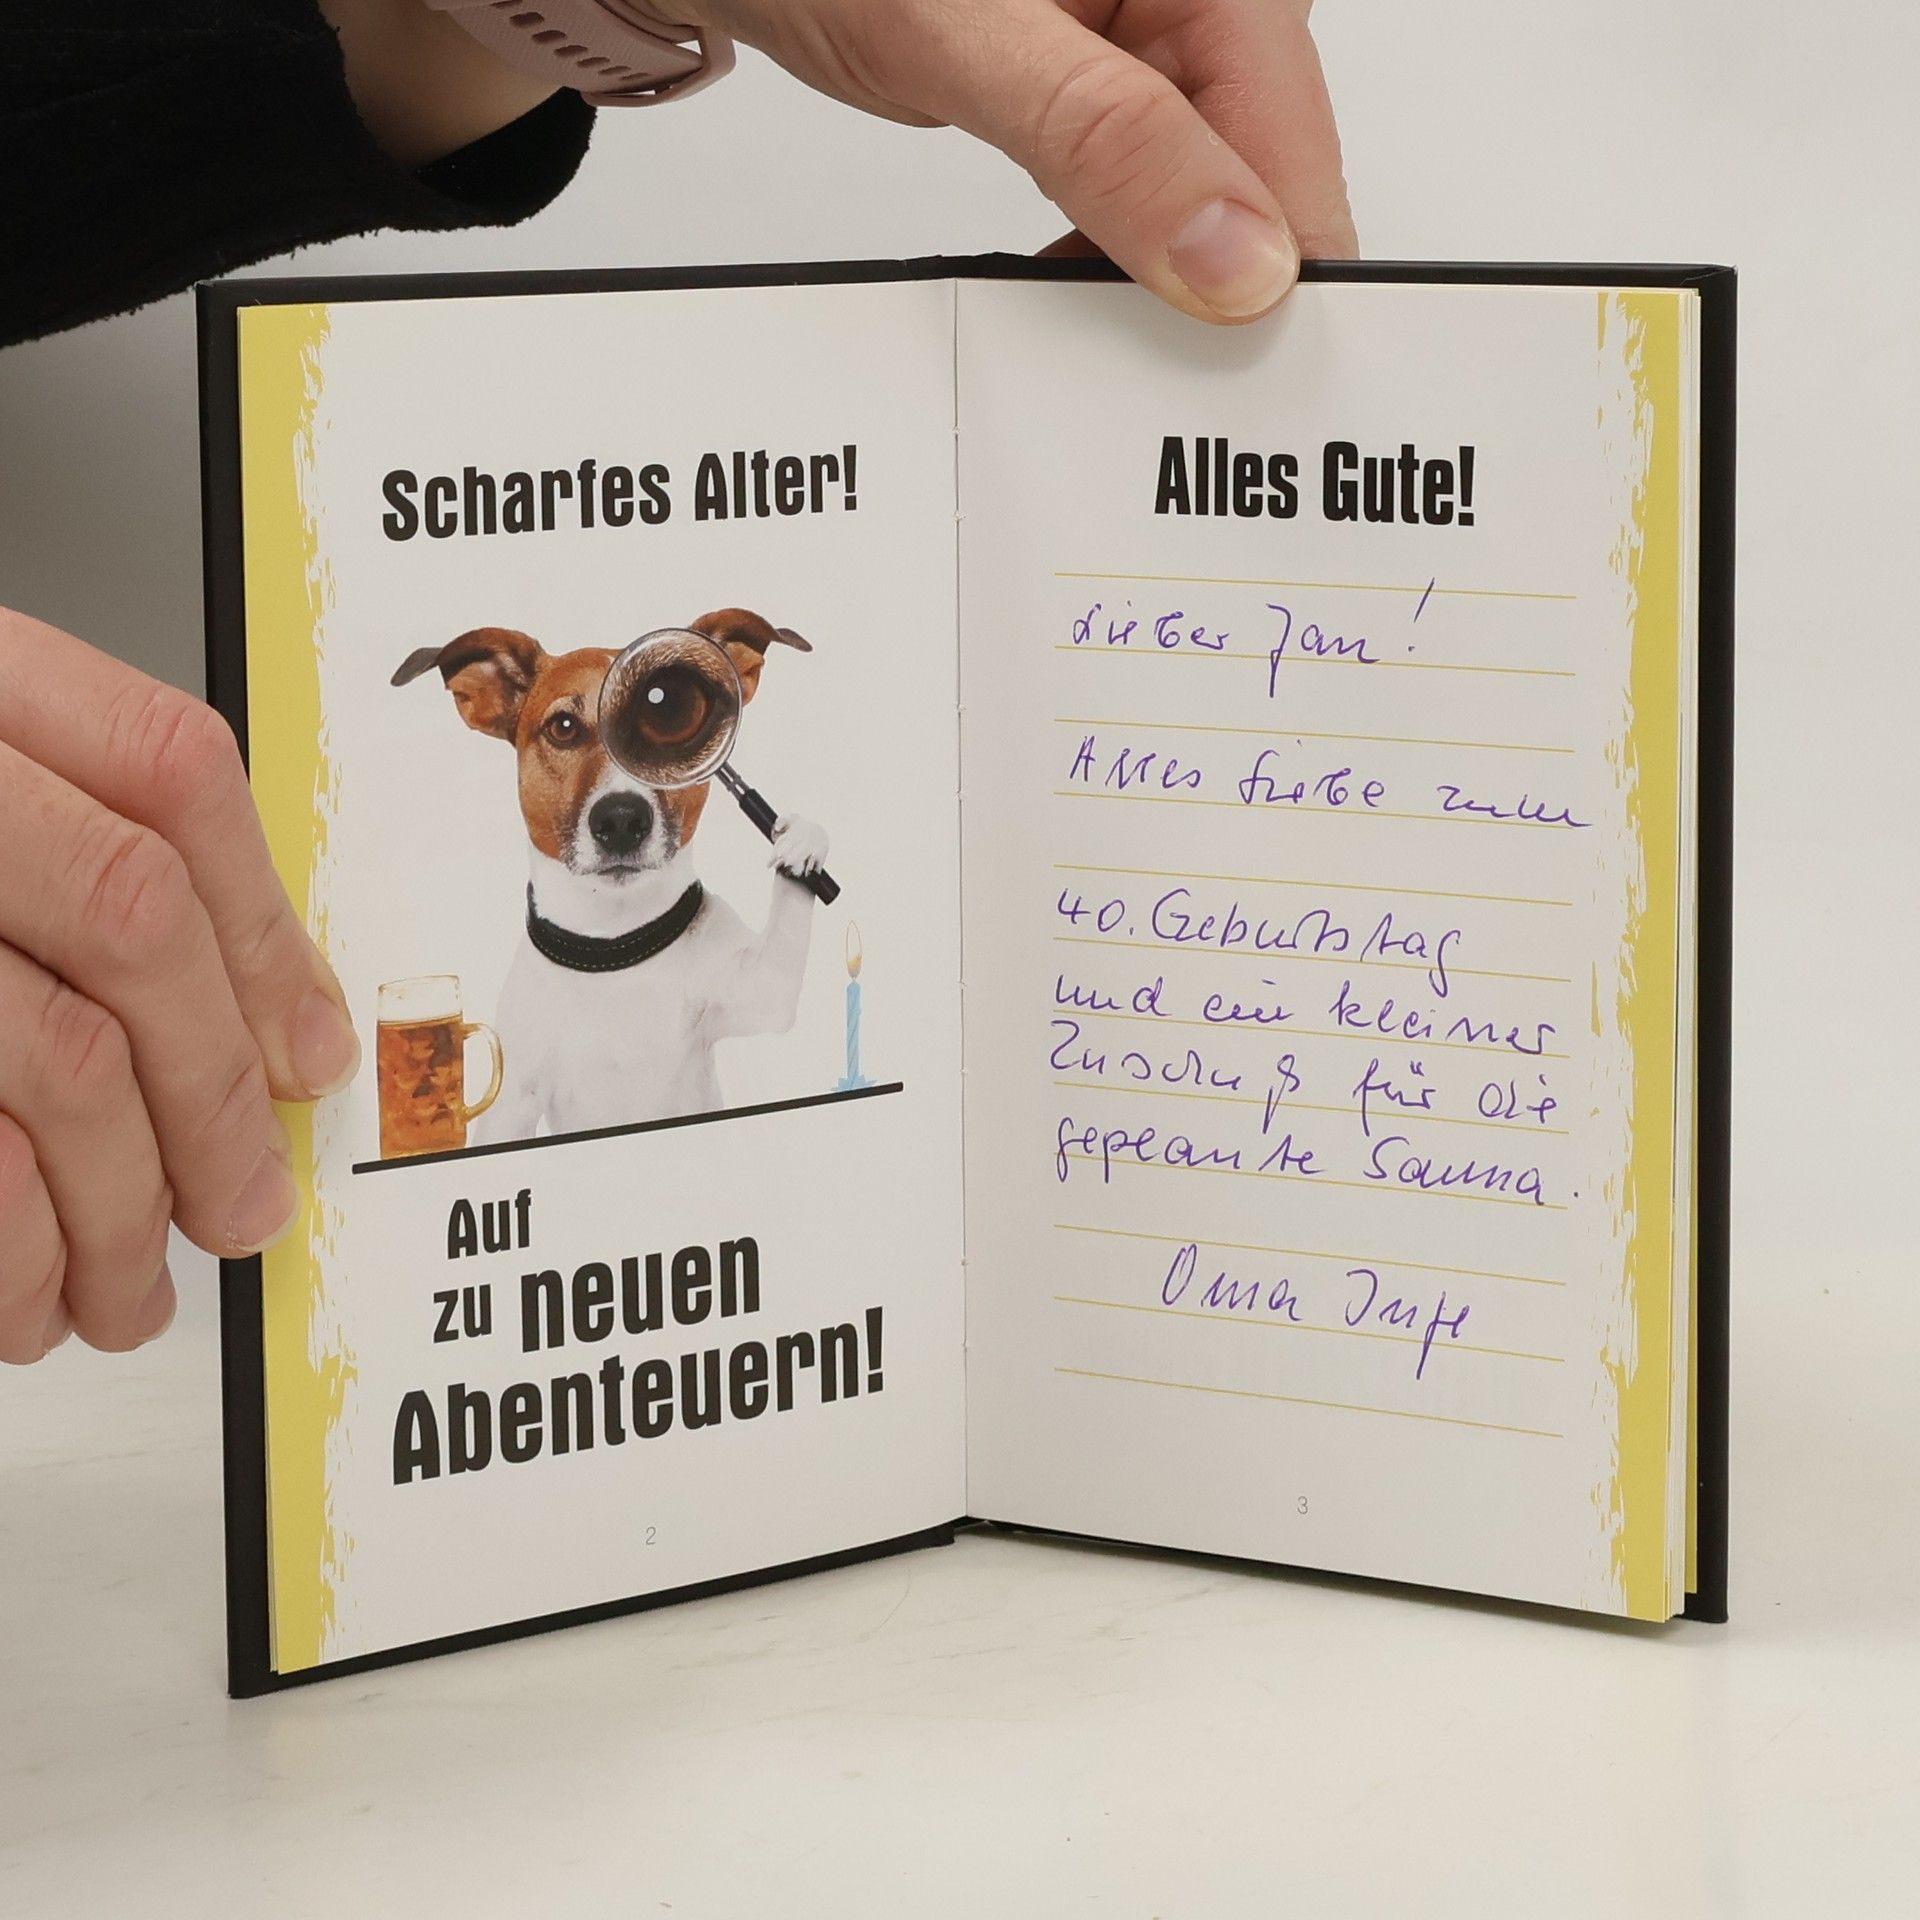 Scharfes Alter!
Auf
zu neuen
Abenteuern!
2
Alles Gute!
Lieber Jan!
Alles Liebe zum
40. Geburtstag
und ein kleiner
Zuschuß für die
geplante Sauna.
Oma Inge
3